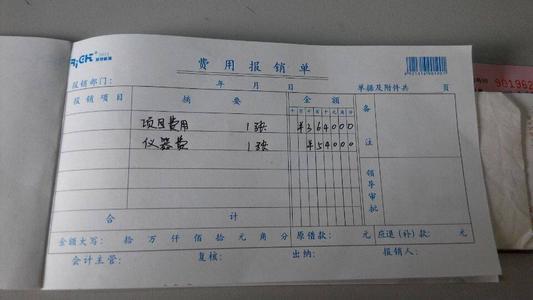 RiCH
费用报销单
报销部门： 年 月 日 单据及附件共 页
报销项目 摘要 金额 备注
十万千百十元角分
项目费用 1张 ¥364000
仪器费 1张 ¥54000
领导审批
合计
金额大写： 拾 万 仟 佰 拾 元 角 分 原借款： 元 应退（补）款： 元
会计主管： 复核： 出纳： 报销人：